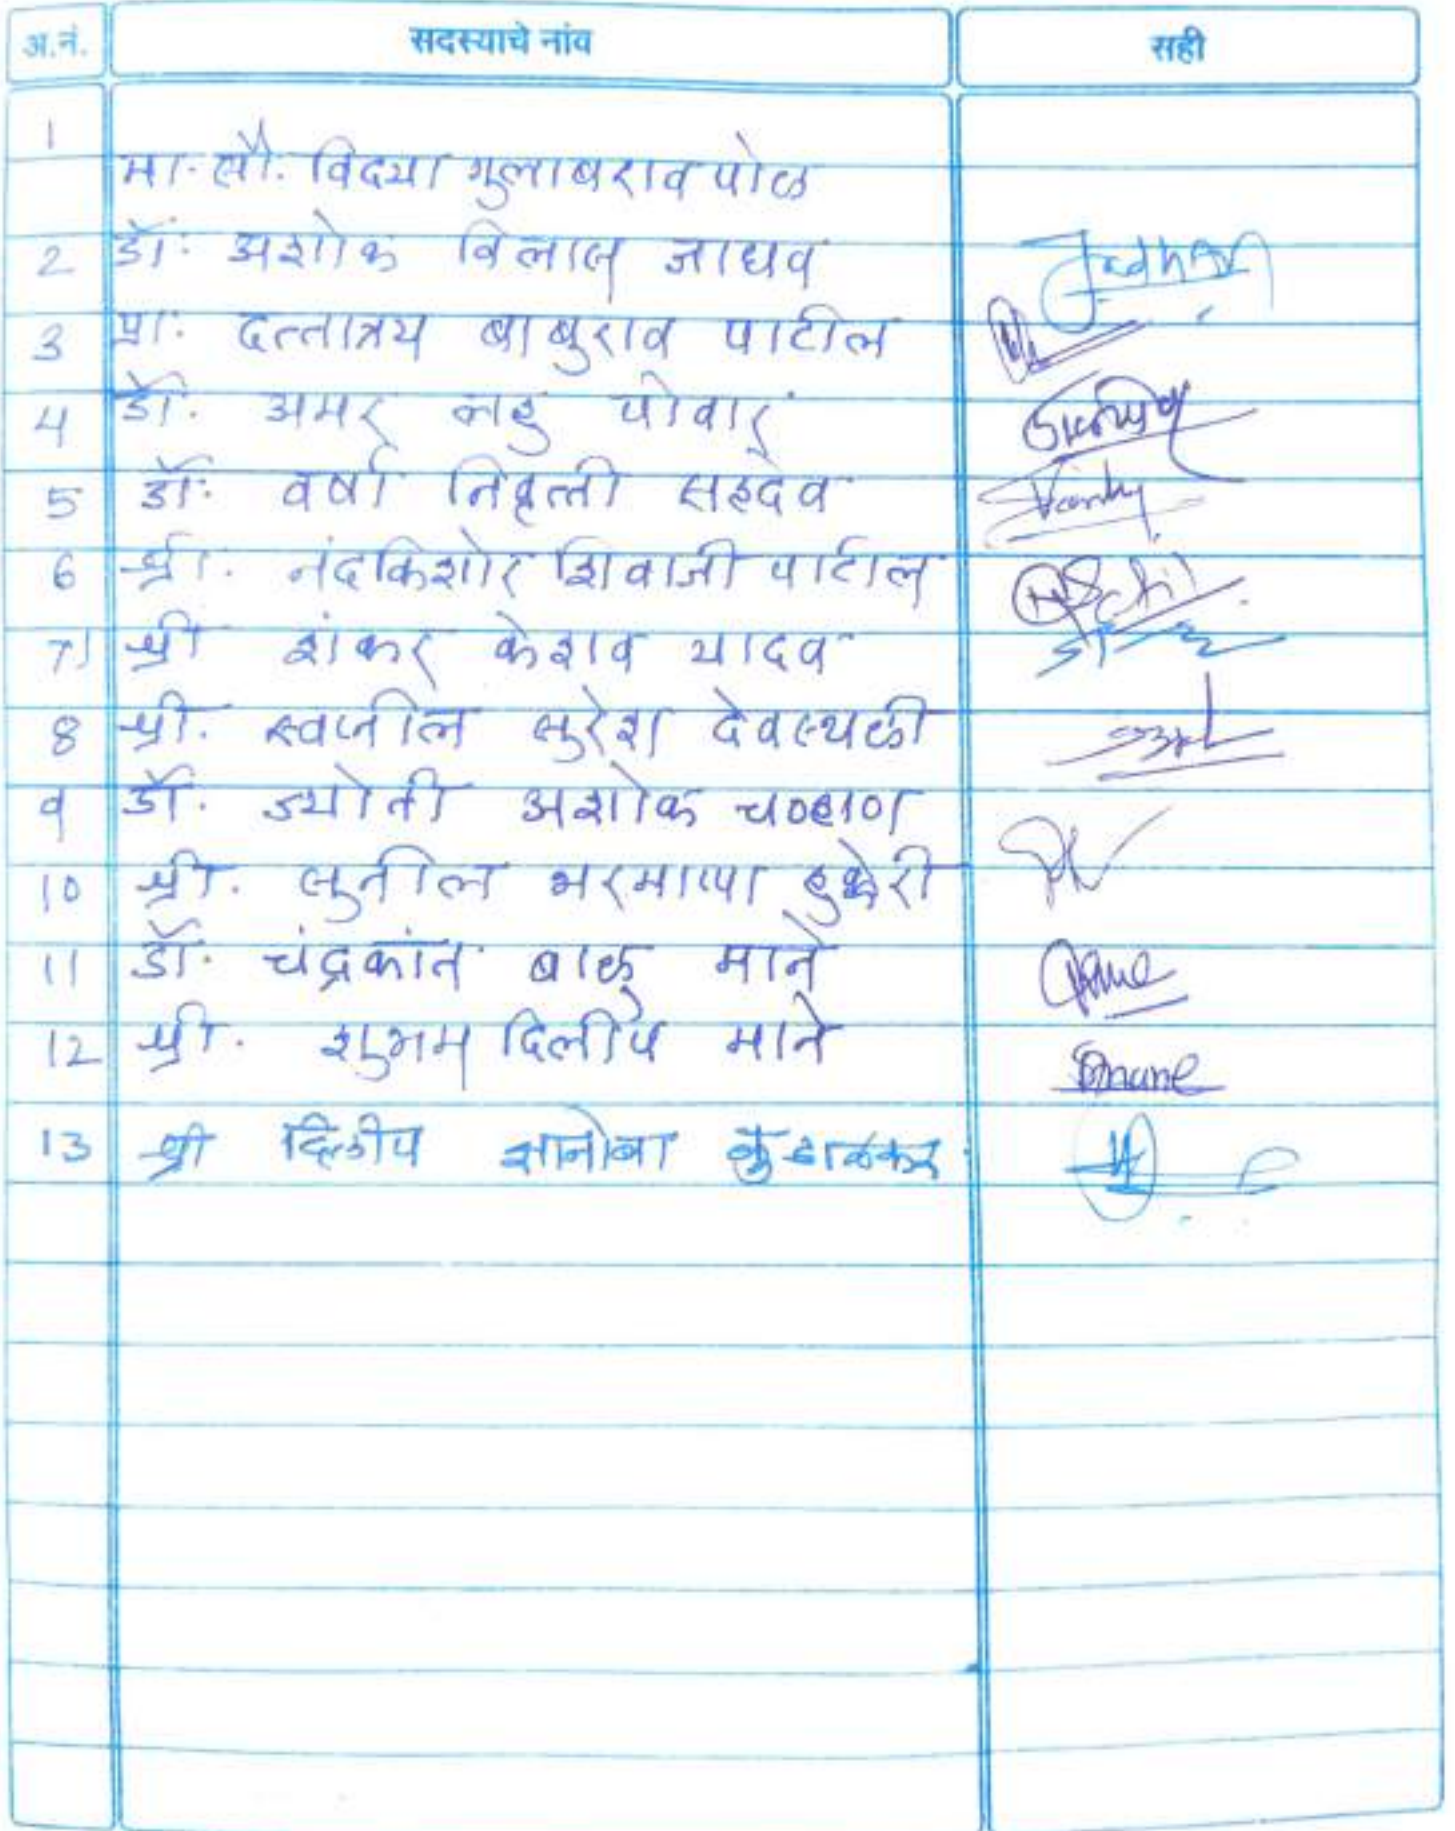 अ.नं. सदस्याचे नांव सही
1
मा. सौ. विदया गुलाबराव पोळ
2 डॉ. अशोक विलास जाधव Jadhav
3 प्रा. दत्तात्रय बाबुराव पाटील
4 डॉ. अमर लहु पोवार
5 डॉ. वर्षा निवृत्ती सहदेव
6 श्री. नंदकिशोर शिवाजी पाटील
7) श्री शंकर केशव यादव
8 श्री. स्वप्नील सुरेश देवस्थळी
9 डॉ. ज्योती अशोक चव्हाण
10 श्री. सुनील भरमाप्पा
11 डॉ. चंद्रकांत बाळू माने Mane
12 श्री. शुभम दिलीप माने Smane
13 श्री दिलीप ज्ञानोबा कुडाळकर